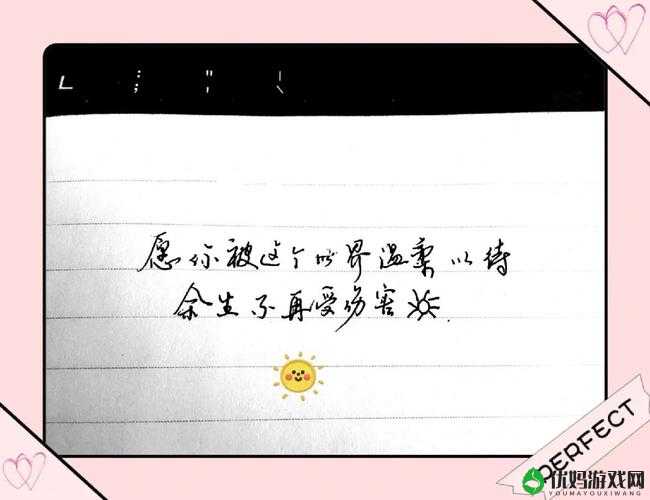 愿你被这个世界温柔以待
余生不再受伤害
PERFECT
优妈游戏网
YOUMAYOUXIWANG